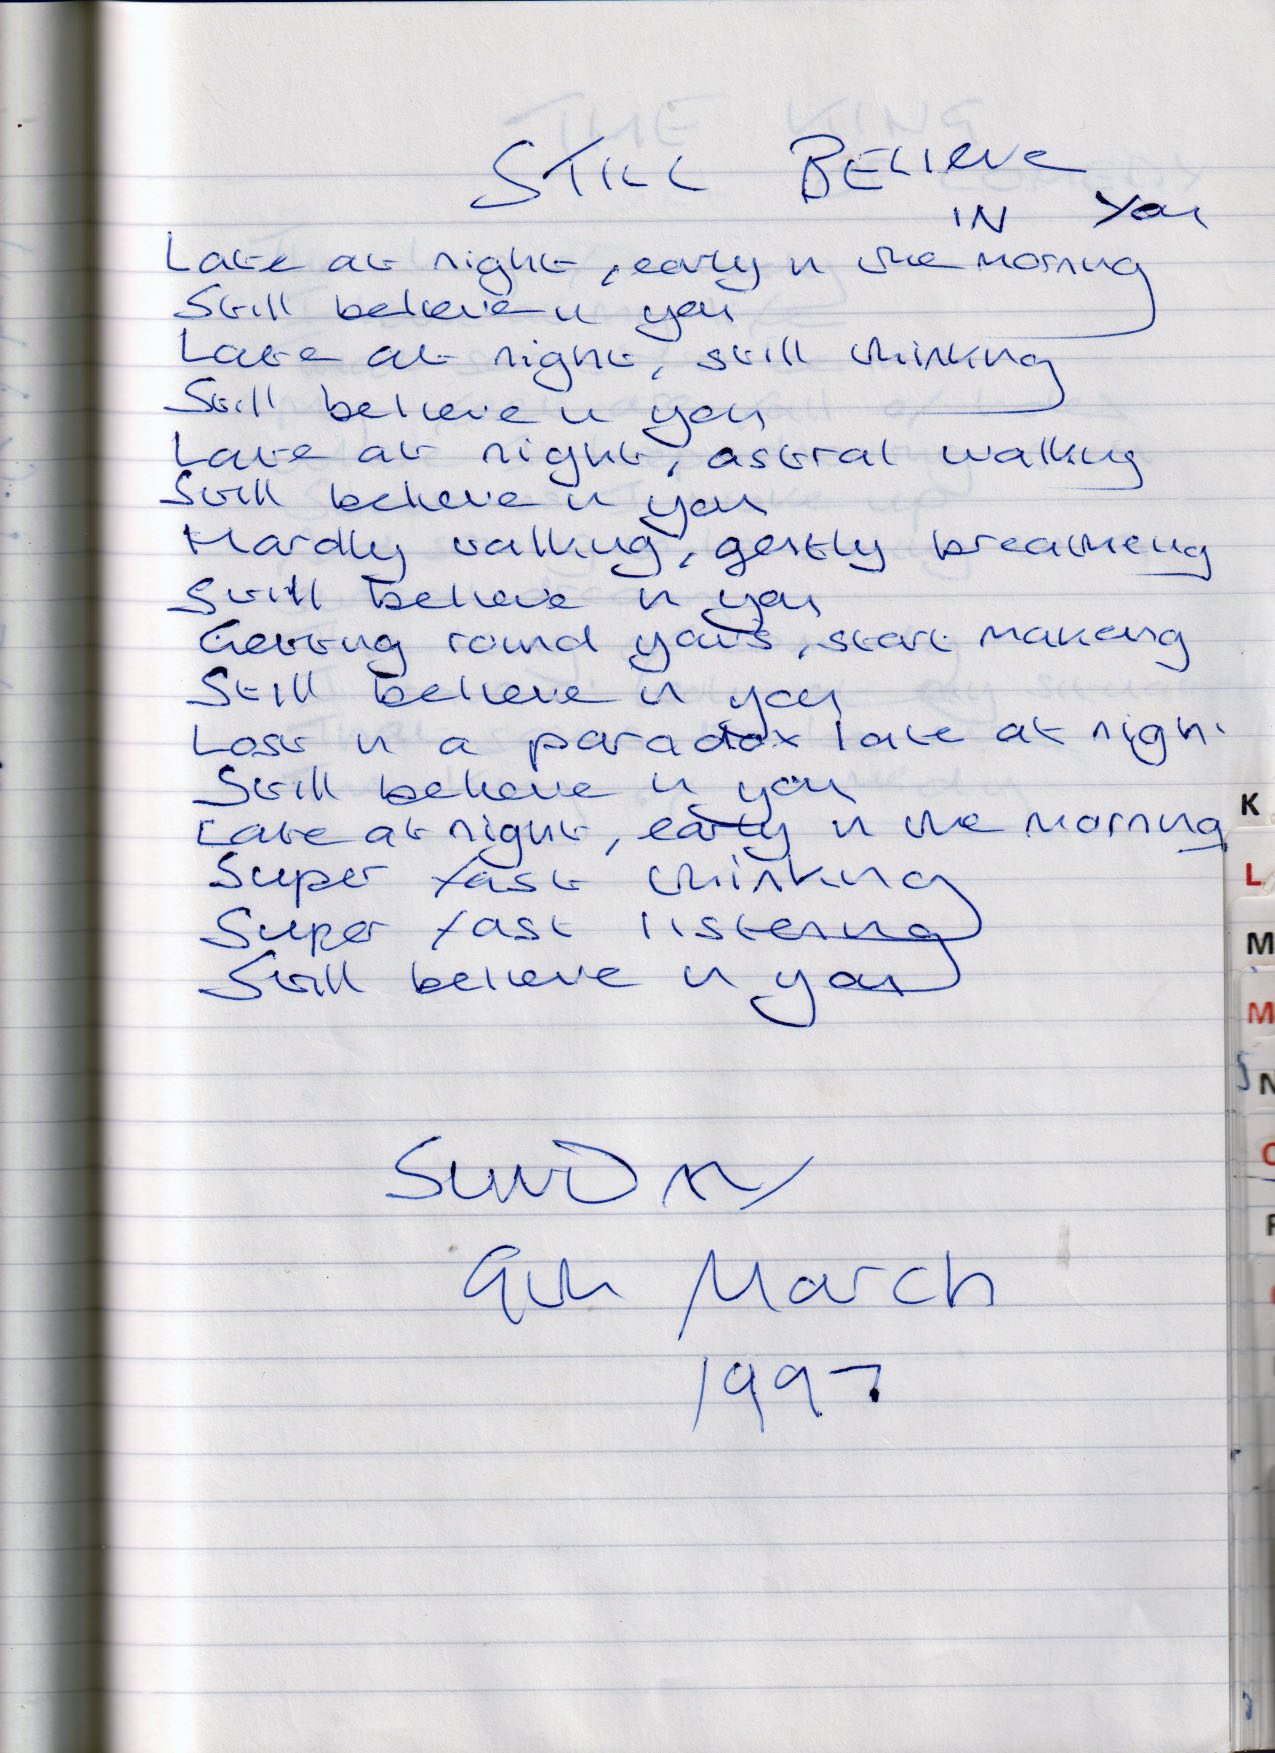 STILL BELIEVE
IN You
Late at night, early in the morning
Still believe in you
Late at night, still thinking
Still believe in you
Late at night, astral walking
Still believe in you
Hardly talking, gently breatheing
Still believe in you
Getting round yours, start makeing
Still believe in you
Lost in a paradox late at night
Still believe in you
Late at night, early in the morning
Super fast thinking
Super fast listening
Still believe in you
SUNDAY
9th March
1997
K
L
M
M
N